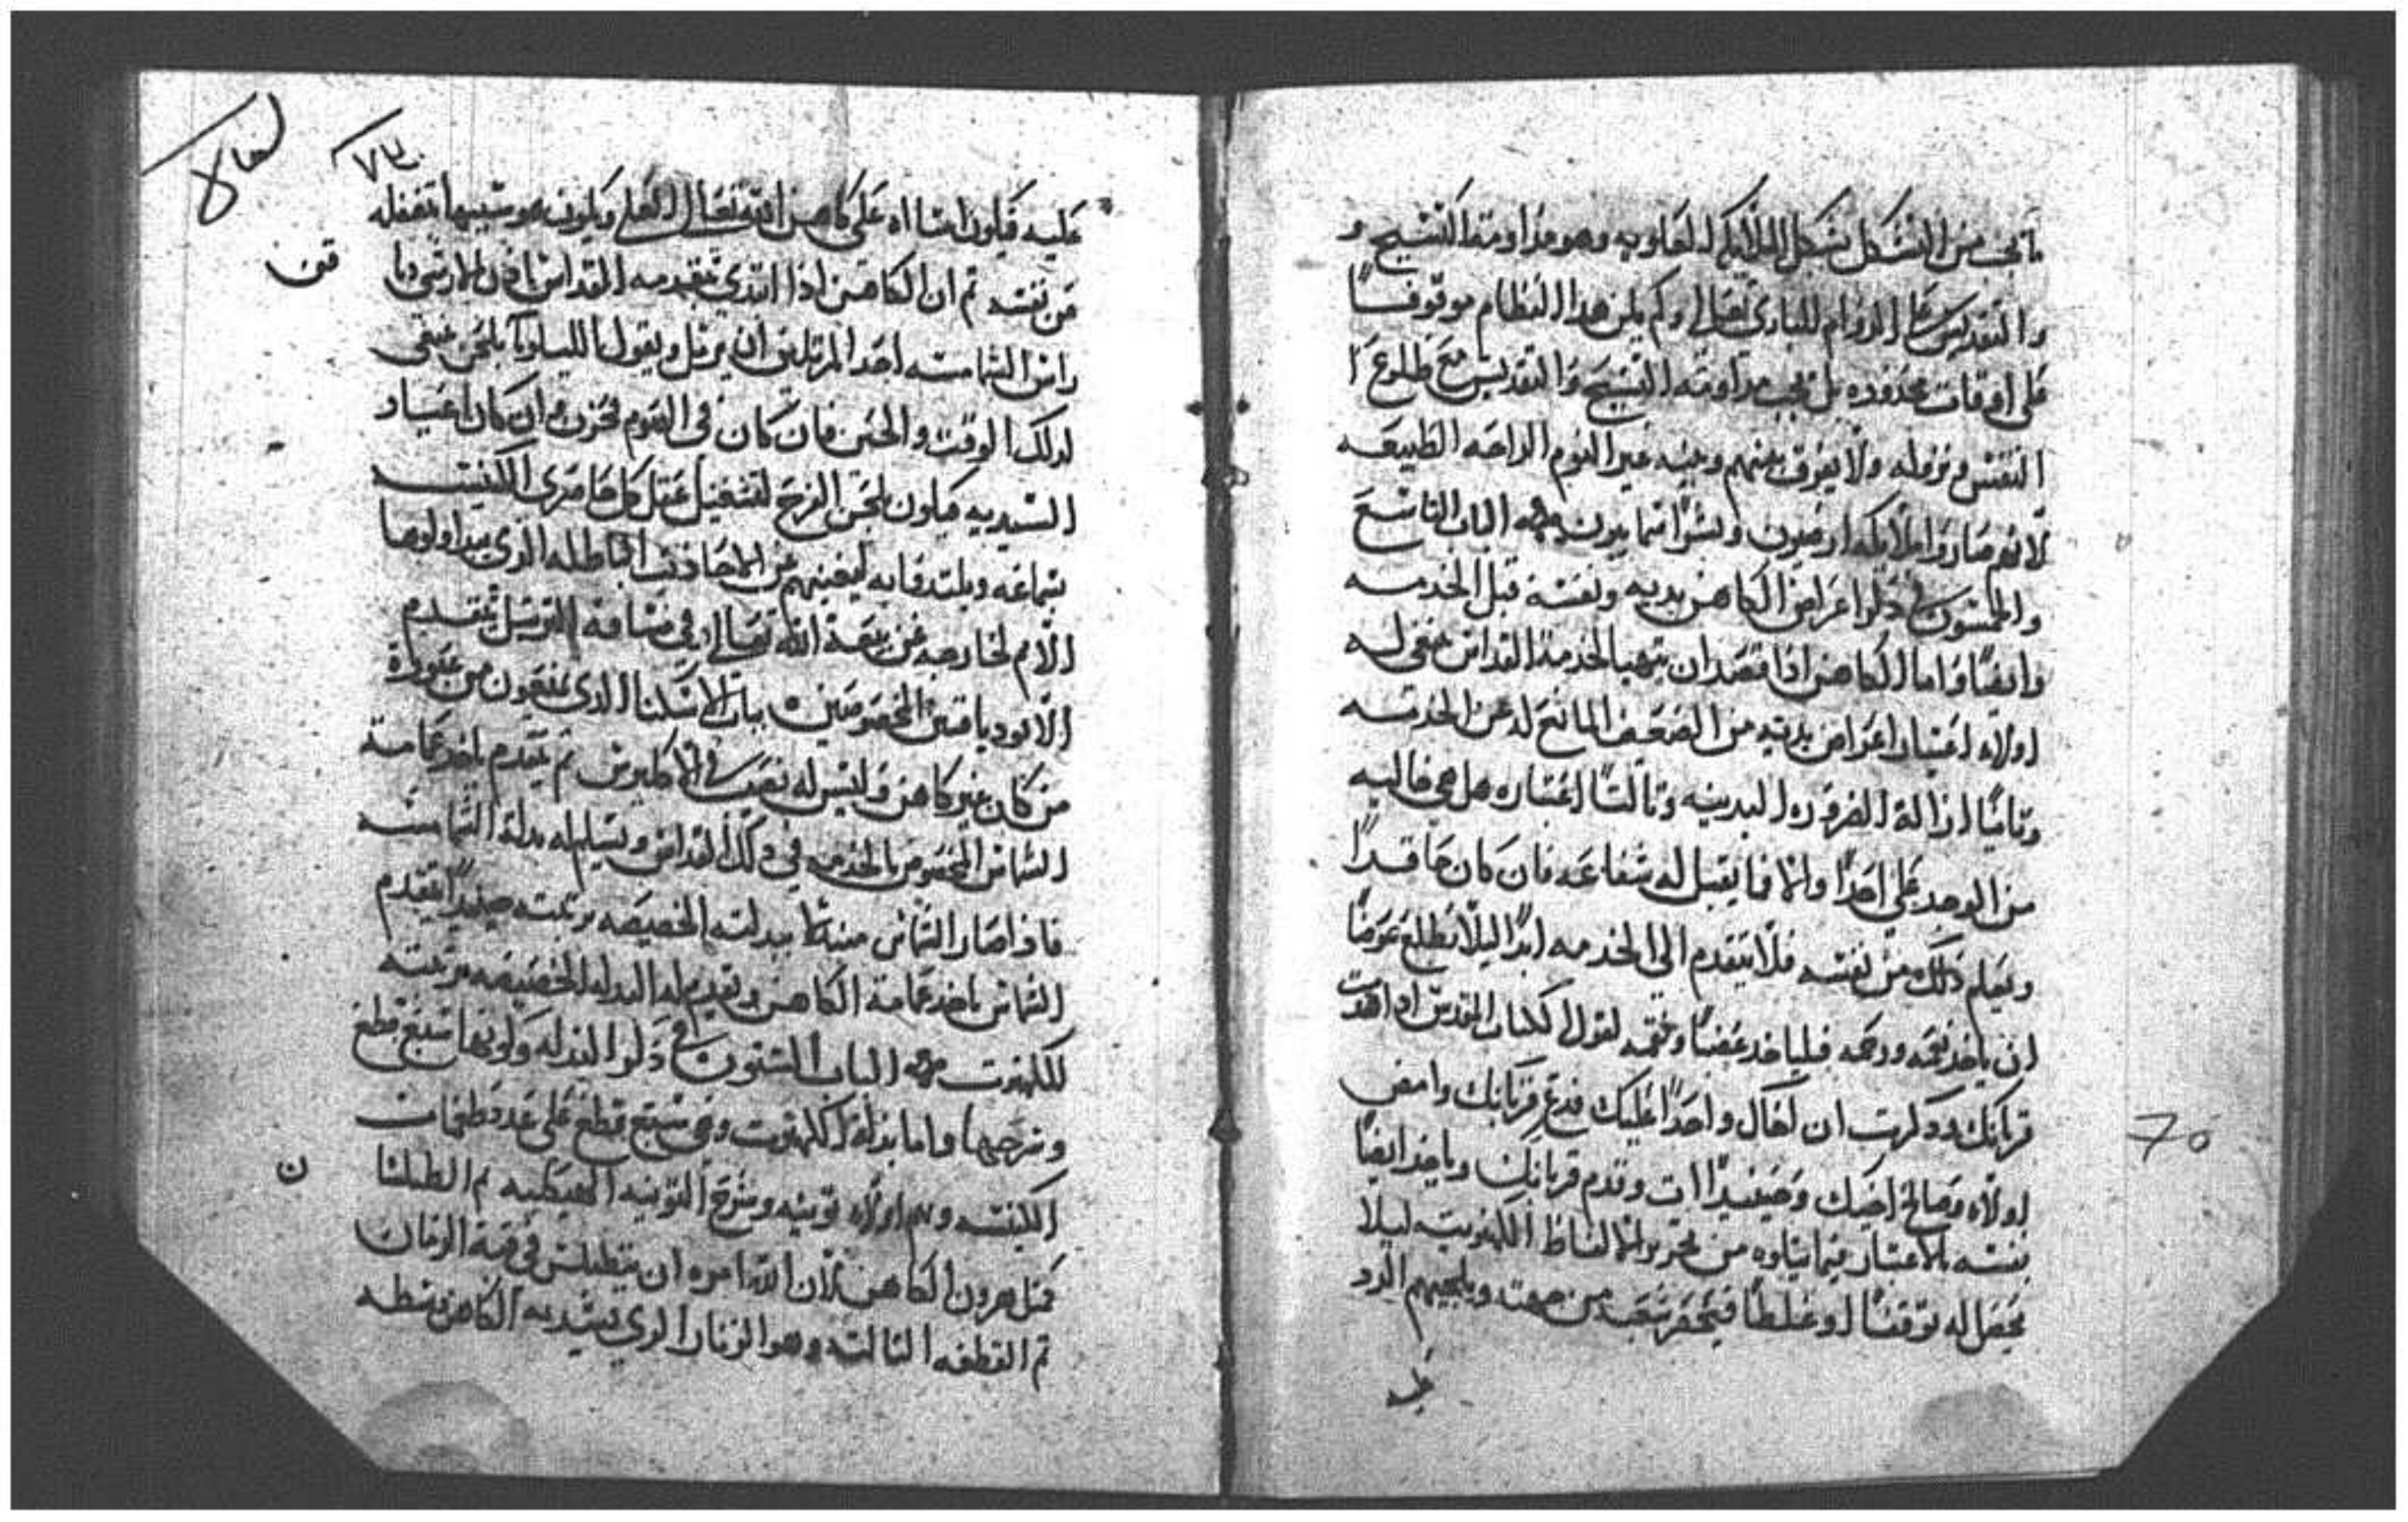 ما يجب من التشكل بشكل الملايكه العلويه وهو مداومة التسبيح و
والتقديس على الدوام للباري تعالى ولم يكن هدا النظام موقوفاً
على اوقات محدوده بل يجب مداومته التسبيح والتقديس مع طلوع ا
النفس ونزوله ولا يفرق بينهم وبينه غير النوم الراحه الطبيعه
لانهم صاروا ملايكه ارضيون وبشراً سماييون الباب التاسع
والخمسون في دكر اعراض الكاهن بدنيه ونفسه قبل الخدمه
وايضاً واما الكاهن اذا قصد ان يتهيا لخدمة القداس فينبغي له
اولاً اعتبار اعراض بدنه من الضعف المانع له عن الخدمه
وتانياً ازالة الضروره البدنيه وتالتاً اعتباره هل هي خاليه
من الوجد على احداً والا فما يقبل له شفاعه فان كان حاقداً
ويعلم دلك من نفسه فلا يتقدم الى الخدمه ابداً ليلا تطلع عوضاً
ان ياخد نعمه ورحمه فلياخد غضباً ونقمه لقول الكتاب المقدس اذا اهديت
قربانك ودكرت ان لخاك واحداً عليك فدع قربانك وامض
اولاً وصالح اخيك وحينيداً ات وقدم قربانك وياخد ايضاً
نفسه بالاعتبار فيما يتلوه من تحرير الالفاظ الكهنوتيه ليلا
يحصل له توقفاً او غلطاً فيحتقر شعب من جهته ويلجيهم الرد
عليه
70
عليه فيكون اساه على كاهن الله تعالى العلي ويكون هو سببها تغفله
عن نفسه ثم ان الكاهن اذا ابتدى بتقدمه القداس اذن للارشي ديا
راس الشمامسه احد المرتلين ان يرتل ويقول الليلويا بلحن ينبغي
لدلك الوقت والحين فان كان في الصوم فحزن وان كان اعياد
السيديه فيكون بلحن الفرح لتشغيل عقل كل حاضري الكنيسه
بسماعه ويلتدذوا به ليغنيهم عن المحادتت الباطله الذي يتداولوها
الامم الخارجه عن بيعة الله تعالى وفي مسافة الترتيل يتقدم
الابودياقنين المخصوصين بباب الاسكنا الدي يمنعون من عبوره
من كان غير كاهن وليس له نصيب في الاكليرس ثم يتقدم ياخد عمامة
الشماس المخصوص بالخدمه في دلك القداس ويسلم له بدلة الشمامسه
فاذا صار الشماس مبدلا ببدلته الخصيصه برتبته حينيداً يتقدم
الشماس ياخد عمامة الكاهن ويقدم له البدله الخصيصه برتبته
للكهنوت الباب الستون في دكر البدله وكونها سبع قطع
وشرحها واما بدلة الكهنوت وهي سبع قطع على عدد طغمات
الكنيسه وهم اولاً تونيه وشرح التونيه الهيكليه ثم الطيلسا ن
كمتل هرون الكاهن لان الله امره ان يتطيلس في قبة الزمان
ثم القطعه التالته وهو الزنار الدي يشد به الكاهن وسطه